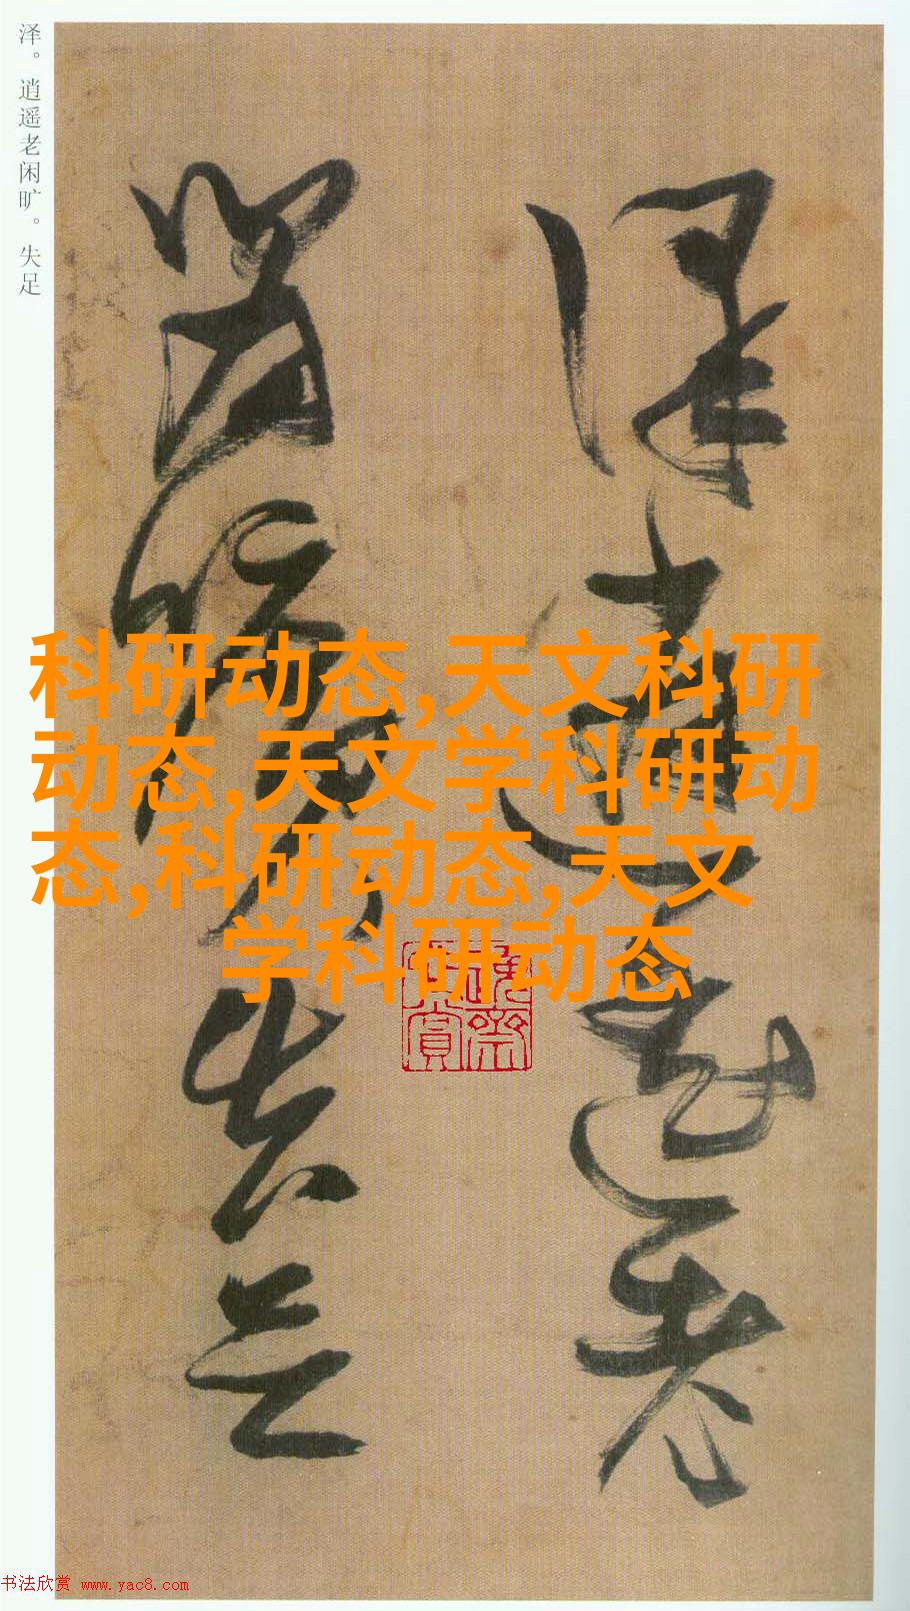 泽。逍遥老闲旷。失足
泽逍遥老
闲旷失足
科研动态,天文科研
动态,天文学科研动
态,科研动态,天文
学科研动态
书法欣赏 www.yac8.com